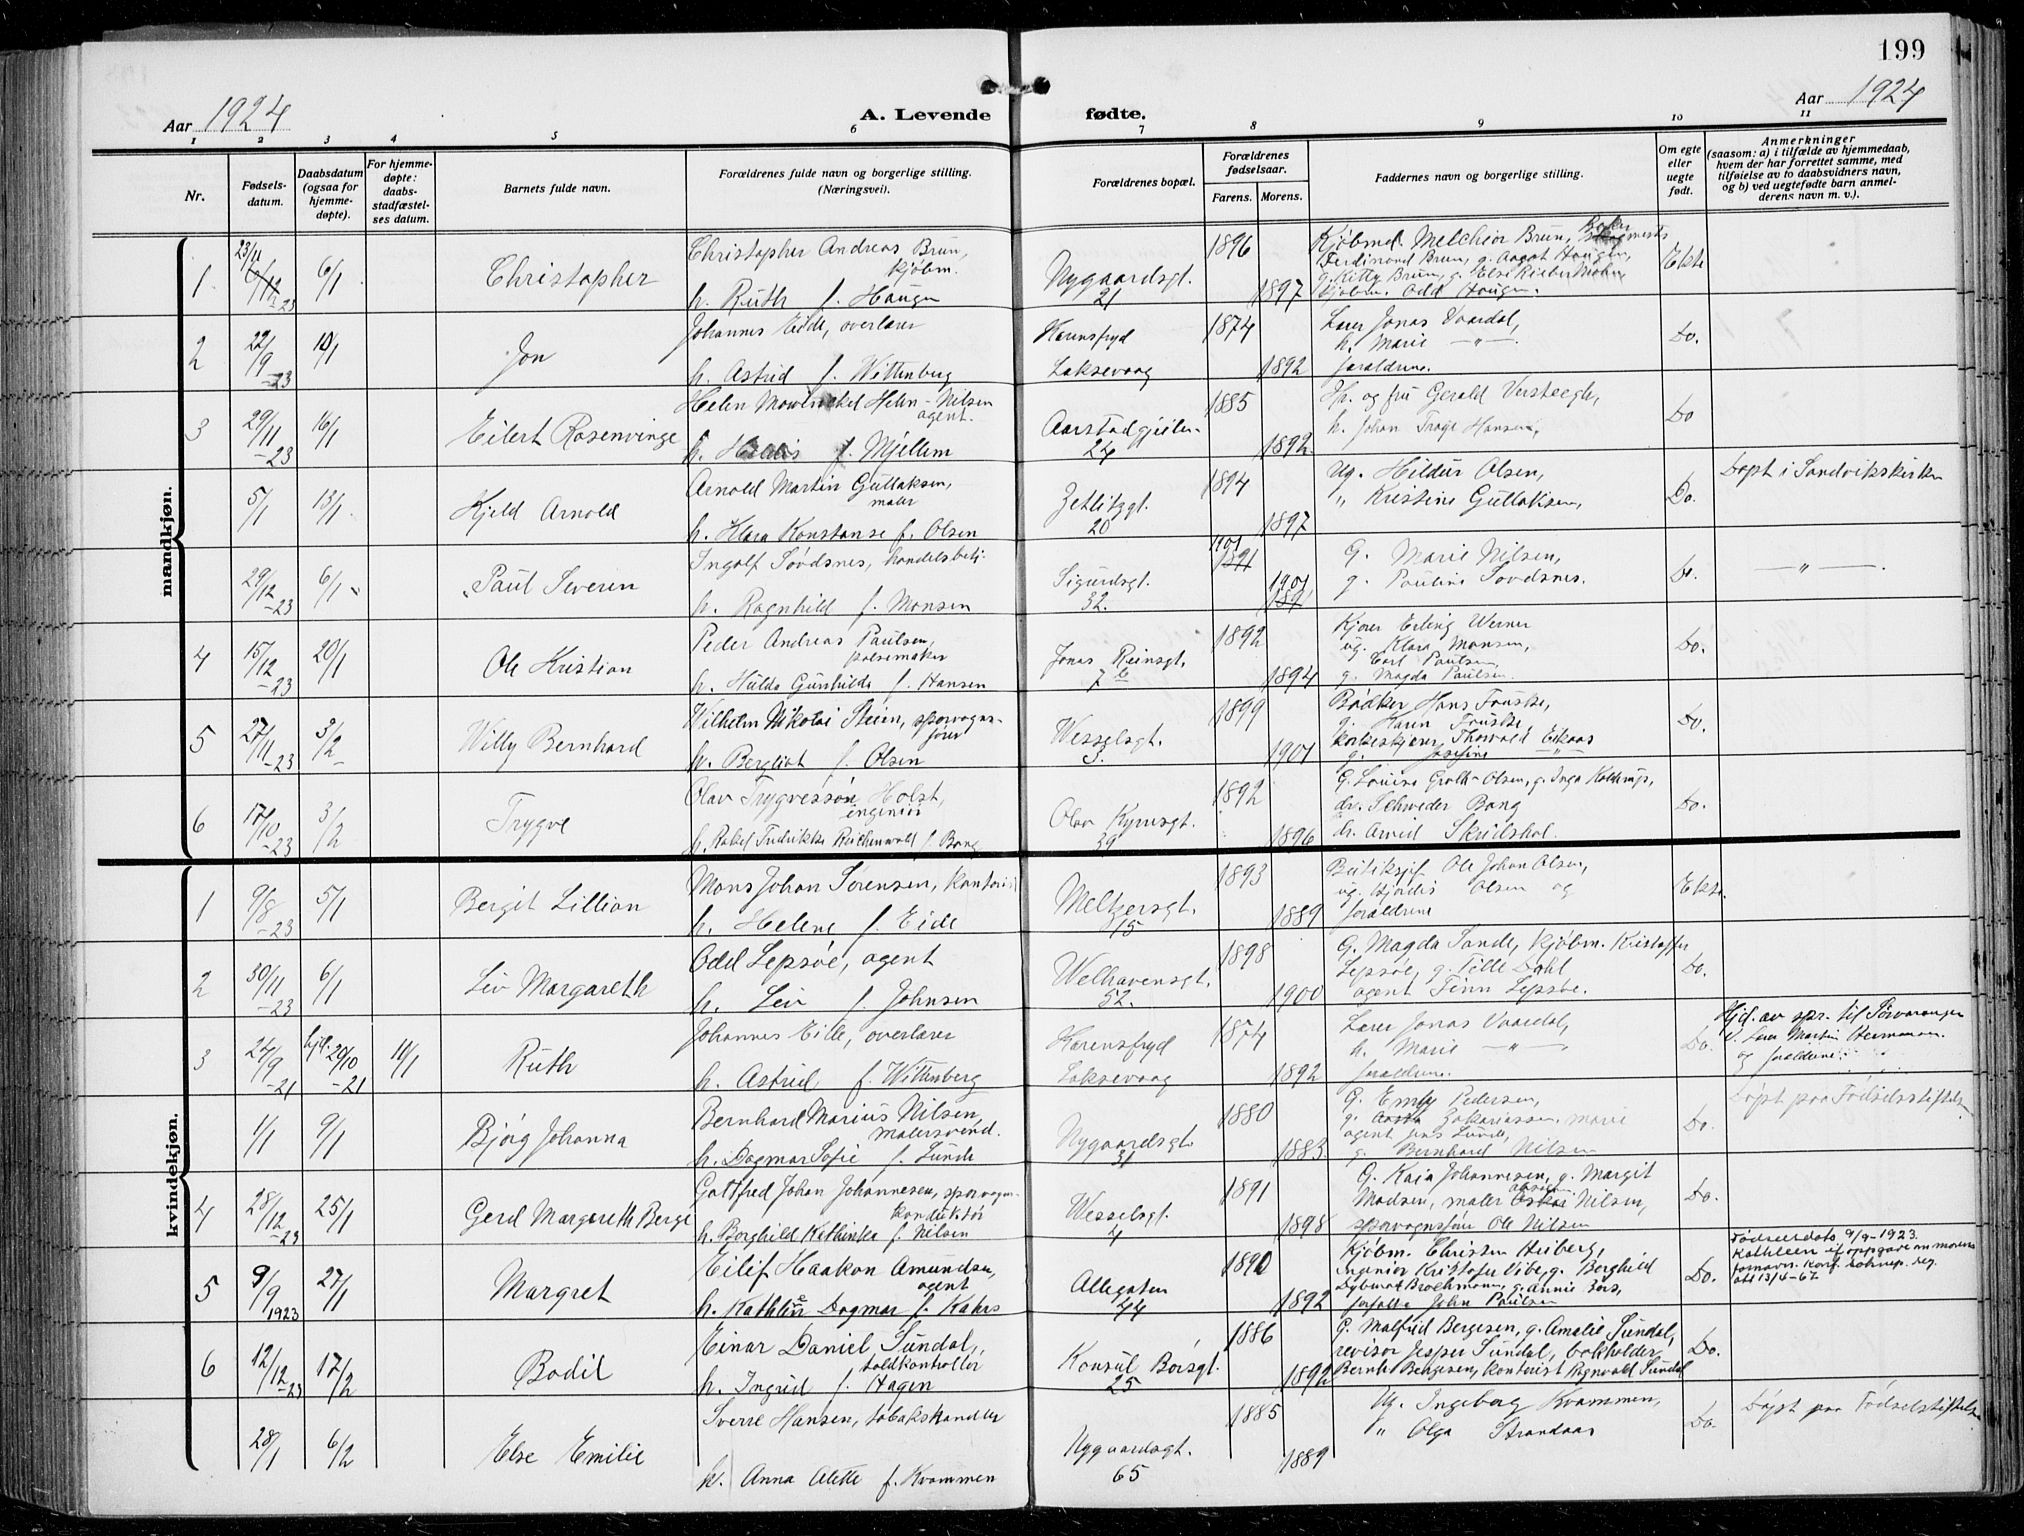 199
Aar 1924
A. Levende fødte.
Aar 1924
1 2 3 4 5 6 7 8 9 10 11
Nr.
Fødsels-
datum.
Daabsdatum
(ogsaa for
hjemme-
døpte).
For hjemme-
døpte:
daabs-
stadfæstel-
ses datum.
Barnets fulde navn.
Forældrenes fulde navn og borgerlige stilling.
(Næringsvei).
Forældrenes bopæl.
Forældrenes
fødselsaar.
Farens. Morens.
Faddernes navn og borgerlige stilling.
Om egte
eller
uegte
født.
Anmerkninger
(saasom: a) i tilfælde av hjemmedaab,
hvem der har forrettet samme, med
tilføielse av to daabsvidners navn,
og b) ved uegtefødte barn anmel-
derens navn m. v.).
mandkjøn.
1 23/11 6/12-23 6/1 Christopher
Christopher Andreas Brun,
kjøbm.
h. Ruth f. Haugen
Nygaardsgt.
21
1896 1897
Kjøbmd. Melchior Brun,
Ferdinand Brun, g. Aagot Haugen,
g. Kitty Brun, g. Else Rieber Mohn,
kjøbm. Odd Haugen.
Ekte
2 22/9-23 10/1 Jon
Johannes Eide, overlærer
h. Astrid f. Wittenberg
Karensfryd
Laksevaag
1874 1892
Lærer Jonas Vaardal,
h. Marie —„—
forældrene.
Do.
3 29/11-23 16/1 Eilert Rosenvinge
Helen Mowinckel Hehn-Nilsen
agent.
h. f. Mjellem
Aarstadgjeilen
24
1885 1892
Hr. og fru Gerald Versteegh,
h. Johan Trage Hansen,
Do
5/1 13/1 Kjeld Arnold
Arnold Martin Gullaksen,
maler
h. Klara Konstanse f. Olsen
Zetlitzgt.
20
1894 1897
Ug. Hildur Olsen,
„ Kristine Gullaksen,
Do.
Døpt i Sandvikskirken
29/12-23 6/1 Paul Severin
Ingolf Søvdsnes, handelsbetj.
h. Ragnhild f. Monsen
Sigurdsgt.
32.
1901 1901
G. Marie Nilsen,
g. Pauline Søvdsnes.
Do.
—„—
4 15/12-23 20/1 Ole Kristian
Peder Andreas Paulsen,
pølsemaker
h. Hulda Gunhilda f. Hansen
Jonas Reinsgt.
7 b
1892 1894
Kjører Erling Werner
ug. Klara Monsen,
Carl Paulsen,
g. Magda Paulsen.
Do.
5 27/11-23 3/2 Willy Bernhard
Wilhelm Nikolai Steien, sporvogns-
fører
h. Bergliot f. Olsen
Wesselsgt.
3.
1899 1901
Bødker Hans Fauske,
g. Karen Fauske,
korkeskjærer Thorvald
g. Josefine —„—
Do.
6 17/10-23 3/2 Trygve
Olav Trygvessøn Holst,
ingeniør
h. Rakel Fredrikke Reichenwald f. Bang
Olav Kyrresgt.
39
1892 1896
G. Louise Groth-Olsen, g. Inga Koltrup,
dr. Schrøder Bang
dr. Arneid Skeidshol.
Do.
kvindekjøn.
1 9/8-23 5/1 Bergit Lillian
Mons Johan Sørensen, kontorist
h. Helene f. Eide
Meltzersgt.
15
1893 1889
Butiksjef Ole Johan Olsen,
ug. Hjørdis Olsen og
forældrene
Ekte.
2 30/11-23 6/1 Liv Margareth
Odd Lepsøe, agent
h. Liv f. Johnsen
Welhavensgt.
52.
1898 1900
G. Magda Sande, kjøbm. Kristoffer
Lepsøe, g. Tille Dahl
agent Finn Lepsøe.
Do.
3 24/9-21 hjd. 29/10-21 10/1 Ruth
Johannes Eide, overlærer
h. Astrid f. Wittenberg
Karensfryd
Laksevaag
1874 1892
Lærer Jonas Vaardal,
h. Marie —„—
forældrene.
Do.
Hjd. av spr. til Sørvaranger
v. Lærer Martin Hermansen
og forældrene.
1/1 9/1 Bjørg Johanna
Bernhard Marius Nilsen,
malersvend.
h. Dagmar Sofie f. Lunde
Nygaardsgt.
31
1880 1883
G. Emly Pedersen,
g. Zakariassen, Marie
agent Jens Lunde,
g. Bernhard Nilsen
Do.
Døpt paa Fødselsstiftelsen
4 28/12-23 25/1 Gerd Margareth Berge
Gottfred Johan Johannesen, sporvogn-
konduktør
h. Borghild Kathinka f. Nilsen
Wesselsgt.
4
1891 1898
G. Kaja Johannesen, g. Margit
Madsen, maler Nilsen,
sporvognsfører Ole Nilsen
Do.
5 9/9 1923 27/1 Margret
Eilif Haakon Amundsen,
agent
h. Dagmar f. Kahrs
Allegaten
44
1890 1892
Kjøbm. Christen Huiberg,
Ingeniør Kristofer Vibe, g. Berghild
Dybvad Brochmann, g. Annie
John Paulsen
Do.
Fødselsdato 9/9-1923.
Kathleen if. oppgave om morens
fornavn. Korr. folkereg.
att 13/4-67.
6 12/12-23 17/2 Bodil
Einar Daniel Sundal,
toldkontrollør
h. Ingrid f. Hagen
Konsul Børsgt.
25
1886 1892
G. Malfrid Bergesen, g. Amalie Sundal,
revisor Jesper Sundal, bokholder
Bernh. Bergesen, kontorist Ragnvald Sundal
Do.
28/1 6/2 Else Emilie
Sverre Hansen, tobakshandler
h. Anna Alette f. Kvammen
Nygaardsgt.
65
1885 1889
Ug. Ingeborg Kvammen,
„ Olga Strandaas
Do.
Døpt paa Fødselsstiftelsen